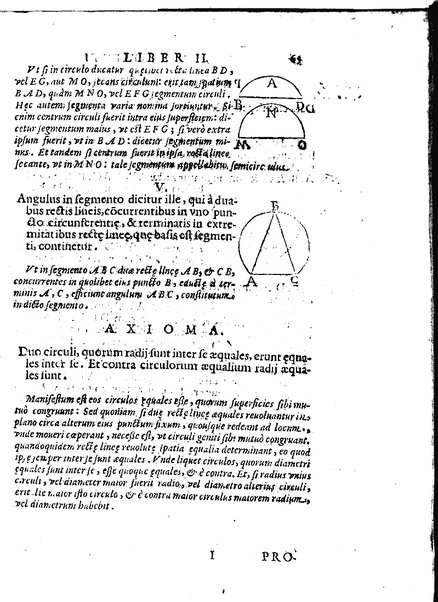 LIBER II.
Vt si in circulo ducatur quęlibet recta linea B D,
vel E G, aut M O, secans circulum: erit tam spatium
B A D, quàm M N O, vel E F G segmentum circuli.
Hęc autem segmenta varia nomina sortiuntur. Si
enim centrum circuli fuerit intra eius superficiem: di-
cetur segmentum maius, vt est E F G; si verò extra
ipsum fuerit, vt in B A D: dicetur segmentum mi-
nus. Et tandem si centrum fuerit in ipsa recta linea
secante, vt in M N O: tale segmentum appellabitur semicirculus.
A
B
D
G
N
M
O
V.
Angulus in segmento dicitur ille, qui à dua-
bus rectis lineis, cōcurrentibus in vno pun-
cto circunferentię, & terminatis in extre-
mitatibus rectę lineę, quę basis est segmen-
ti, continetur.
B
A
C
Vt in segmento A B C duę rectę lineę A B, & C B,
concurrentes in quolibet eius puncto B, eductę à ter-
minis A, C, efficiunt angulum A B C, constitutum
in dicto segmento.
AXIOMA.
Duo circuli, quorum radij sunt inter se æquales, erunt ęqua-
les inter se. Et contra circulorum æqualium radij æqua-
les sunt.
Manifestum est eos circulos ęquales esse, quorum superficies sibi mu-
tuò congruunt: Sed quoniam si duę rectę lineę æquales reuoluantur in
plano circa alterum eius punctum fixum, quousque redeant ad locum,
vnde moueri cœperant, necesse est, vt circuli geniti sibi mutuò congruant,
quandoquidem rectę lineę reuolutę spatia equalia determinant, eo quod
ipsę semper inter se sunt æquales. Vnde liquet circulos, quorum diametri
ęquales sunt inter se, esse quoque ęquales, & è contra. Et, si radius vnius
circuli, vel diameter maior fuerit radio, vel diametro alterius circuli,
erit ille maior isto circulo, & è contra maior circulus maiorem radium,
vel diametrum habebit.
I PRO-